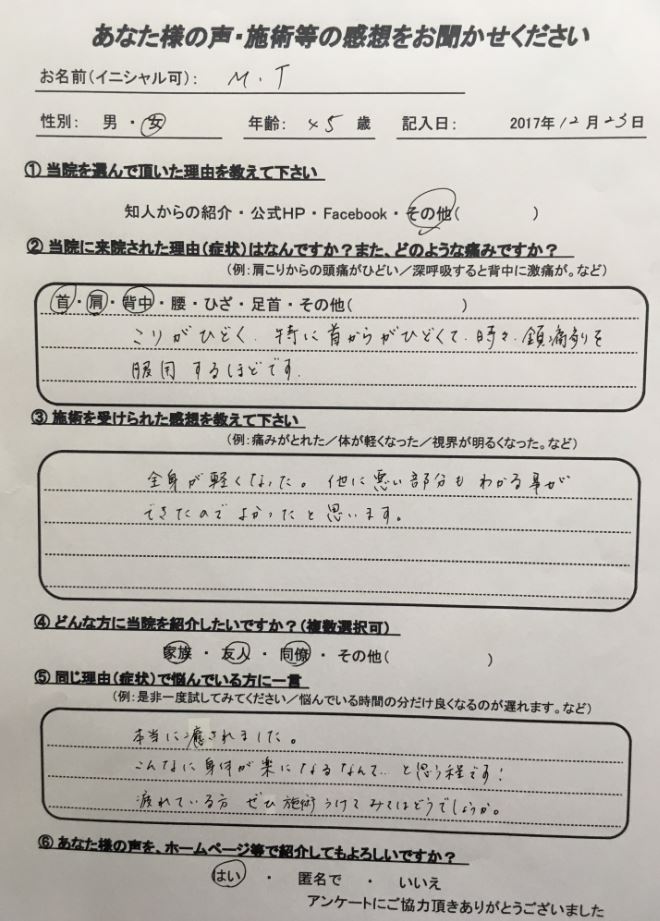 あなた様の声・施術等の感想をお聞かせください
お名前(イニシャル可): M.T
性別: 男・女 年齢: 45 歳 記入日: 2017年12月23日
① 当院を選んで頂いた理由を教えて下さい
知人からの紹介・公式HP・Facebook・その他( )
② 当院に来院された理由(症状)はなんですか?また、どのような痛みですか?
(例:肩こりからの頭痛がひどい/深呼吸すると背中に激痛が。など)
首・肩・背中・腰・ひざ・足首・その他( )
こりがひどく、特に首からがひどくて、時々、鎮痛剤を
服用するほどです.
③ 施術を受けられた感想を教えて下さい
(例:痛みがとれた/体が軽くなった/視界が明るくなった。など)
全身が軽くなった。他に悪い部分もわかる事が
できたのでよかったと思います。
④ どんな方に当院を紹介したいですか?(複数選択可)
家族・友人・同僚・その他( )
⑤ 同じ理由(症状)で悩んでいる方に一言
(例:是非一度試してみてください/悩んでいる時間の分だけ良くなるのが遅れます。など)
本当に癒されました。
こんなに身体が楽になるなんて…と思う程です!
疲れている方 ぜひ施術うけてみてはどうでしょうか。
⑥ あなた様の声を、ホームページ等で紹介してもよろしいですか?
はい ・ 匿名で ・ いいえ
アンケートにご協力頂きありがとうございました